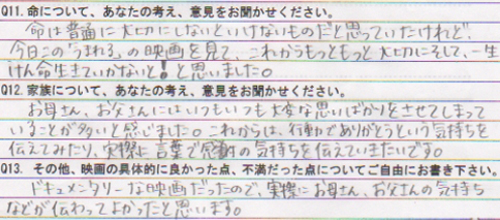 Q11.命について、あなたの考え、意見をお聞かせください。
命は普通に大切にしないといけないものだと思っていたけれど、
今日この「うまれる」の映画を見て、これからもっともっと大切にそして、一生
けん命生きていかないと!と思いました。
Q12.家族について、あなたの考え、意見をお聞かせください。
お母さん、お父さんにはいつもいつも大変な思いばかりをさせてしまって
いることが多いと感じました。これからは、行動でありがとうという気持ちを
伝えてみたり、実際に言葉で感謝の気持ちを伝えていきたいです。
Q13. その他、映画の具体的に良かった点、不満だった点についてご自由にお書き下さい。
ドキュメンタリーな映画だったので、実際にお母さん、お父さんの気持ち
などが伝わってよかったと思います。